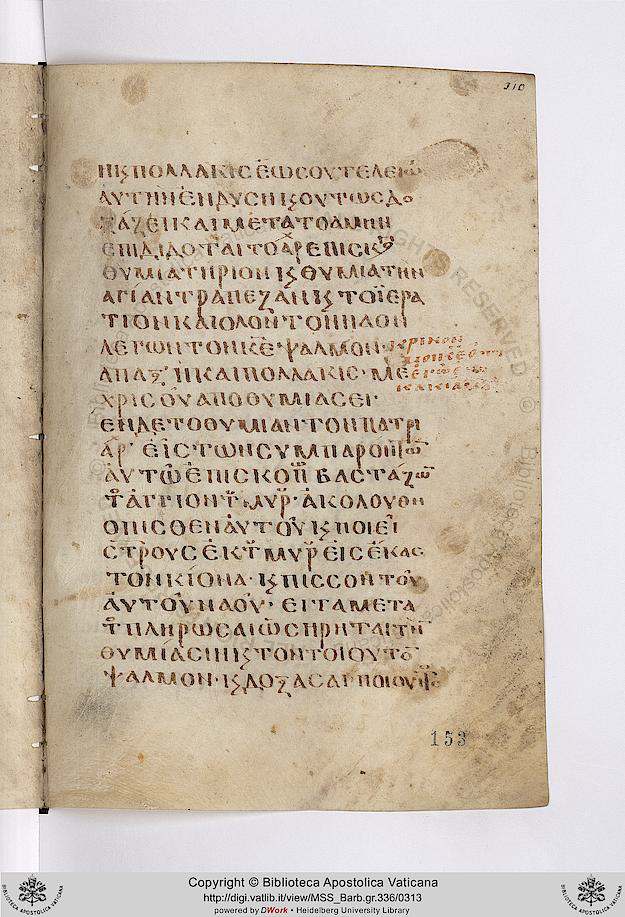 310
Η ΚΑΙ ΠΟΛΛΑΚΙΣ ἕΩΣ ΟΥ ΤΕΛΕΙΩ
ΑΥΤΗΝ ΕΝ ΚΑΙ ΟΥΤΩΣ ΔΟ
ΞΑΖΕΙ ΚΑΙ ΜΕΤΑ ΤΟ ΑΜΗΝ
ΕΠΙΔΙΔΟΤΑΙ ΤΟ ΕΠΙΣΚ
ΘΥΜΙΑΤΗΡΙΟΝ ΚΑΙ ΘΥΜΙΑ ΤΗΝ
ΑΓΙΑΝ ΤΡΑΠΕΖΑΝ ΚΑΙ ΤΟ ΙΕΡΑ
ΤΙΟΝ ΚΑΙ ΟΛΟΝ ΤΟΝ ΝΑΟΝ
ΛΕΓΩΝ ΤΟΝ ΚΕ ΨΑΛΜΟΝ
ΑΠΑΞ Η ΚΑΙ ΠΟΛΛΑΚΙΣ · ΜΕ
ΧΡΙΣ ΟΥ ΑΠΟΘΥΜΙΑΣΕΙ·
ΕΝ ΔΕ ΤΟ ΘΥΜΙΑΝ ΤΟΝ ΠΑΤΡΙ
ΑΡ ΕΙΣ ΤΩΝ ΣΥΜΠΑΡΟΝΤΩΝ
ΑΥΤΩ ΕΠΙΣΚΟΠ ΒΑΣΤΑΖΩΝ
ΤΟ ΑΓΓΙΟΝ ΤΟΥ ΜΥΡ · ΑΚΟΛΟΥΘΗ
ΟΠΙΣΘΕΝ ΑΥΤΟΥ ΚΑΙ ΠΟΙΕΙ
ΣΤΡΟΥΣ ΕΚ ΤΟΥ ΜΥΡ ΕΙΣ ΕΚΑΣ
ΤΟΝ ΚΙΟΝΑ · ΚΑΙ ΠΙΣΣΟΝ ΤΟΥ
ΑΥΤΟΥ ΝΑΟΥ · ΕΙΤΑ ΜΕΤΑ
ΤΟ ΠΛΗΡΩΣΑΙ ΩΣ ΗΡΗΤΑΙ ΤΗΝ
ΘΥΜΙΑΣΙΝ ΚΑΙ ΤΟΝ ΤΟΙΟΥΤΟ
ΨΑΛΜΟΝ · ΚΑΙ ΔΟΞΑΣΑΙ ΠΟΙΟΥ
153
Copyright © Biblioteca Apostolica Vaticana
http://digi.vatlib.it/view/MSS_Barb.gr.336/0313
powered by DWork • Heidelberg University Library